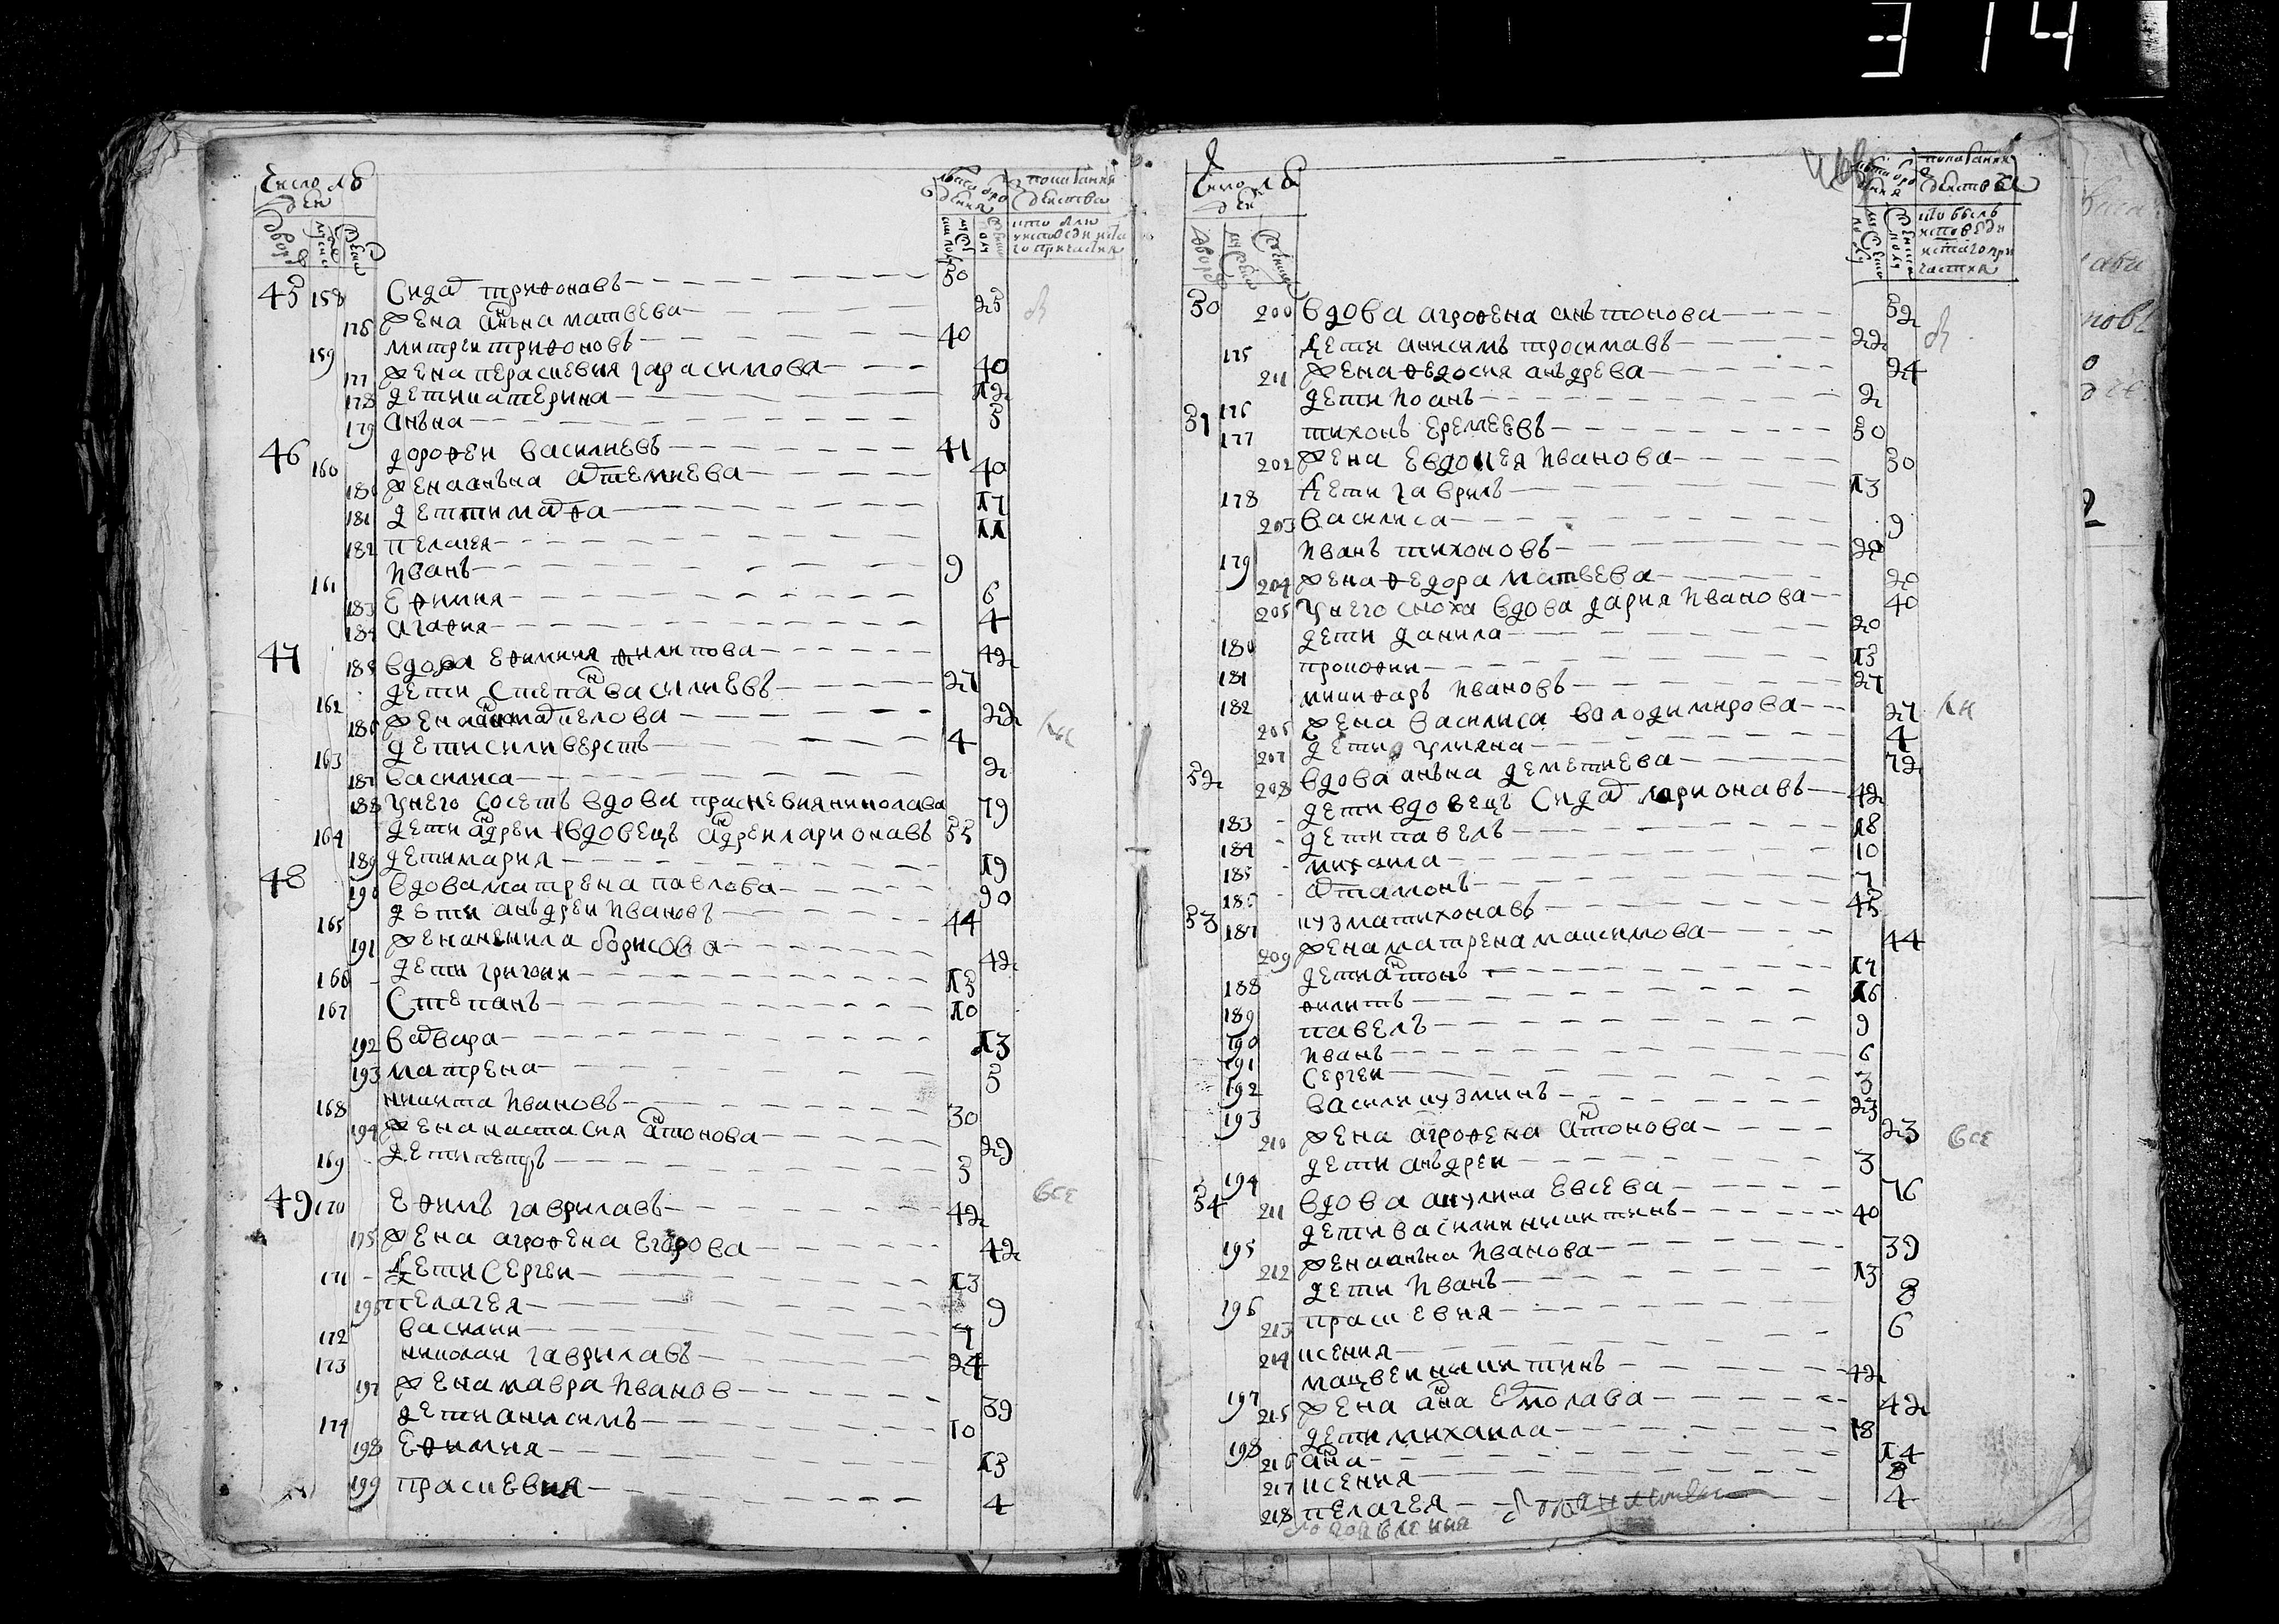 314
Число лю
дей
Дворов
мужеск
женск
45 158 Сидор трифонавъ 50
175 жена анъна матвеева 25
159 митреи трифоновъ 40
177 жена перасковия гарасимова 40
178 дети катерина 12
179 анъна 5
46 160 дорофеи василиевъ 41
180 жена анъна артемиева 40
181 детти марфа 17
182 пелагея 11
161 иванъ 9
183 Ефимия 6
184 агафия 4
47 185 вдова Ефимия филипова 42
162 дети Степан василиевъ 27
186 жена анна карпелова 22
163 дети силиверстъ 4
187 василиса 2
188 у него Соседъ вдова прасковия николава 79
164 дети андреи вдовецъ андреи ларионавъ 55
189 дети мария 19
48 190 вдова матрена павлова 90
165 дети анъдреи ивановъ 44
191 жена ненила борисова 42
166 дети григоии 15
167 Степанъ 10
192 варвара 13
193 матрена 5
168 никита ивановъ 30
194 жена настасия антонова 29
169 дети петръ 5
49 170 Ефимъ гаврилавъ 42
все
195 жена агрофена Егорова 42
171 дети Сергеи 13
196 пелагея 9
172 василии 7
173 николаи гаврилавъ 24
197 жена мавра иванов 39
174 дети анисимъ 10
198 Ефимия 15
199 прасковия 4
Число лю
дей
50 200 вдова агрофена анътонова 52
175 дети анисимъ тросимавъ 22
211 жена федосия анъдрева 24
176 дети иоанъ 2
51 177 тихонъ Еремеевъ 50
202 жена Евдокея иванова 50
178 дети гаврилъ 13
203 василиса 9
179 иванъ тихоновъ 20
204 жена федора матвева 20
205 у него сноха вдова дария иванова 40
180 дети данила 20
181 прокофии 15
182 никифаръ ивановъ 27
206 жена василиса володимирова 27
207 дети улияна 4
52 208 вдова анъна деметиева 72
183 дети вдовецъ Сидар ларионавъ 42
184 дети павелъ 18
185 михаила 10
186 артамонъ 7
53 187 кузма тихонавъ 45
209 жена матрена максимова 44
188 дети антонъ 17
189 филипъ 16
190 павелъ 9
191 иванъ 6
192 Сергеи 3
193 василии кузминъ 23
210 жена агрофена антонова 23
все
194 дети анъдреи 3
54 211 вдова акулина Евсева 76
195 дети василии никитинъ 40
212 жена анъна иванова 39
196 дети иванъ 13
213 прасковия 8
214 ксения 6
197 матвеи никитинъ 42
215 жена анна Ермолава 42
198 дети михаила 18
216 анна 14
217 ксения 8
218 пелагея 4